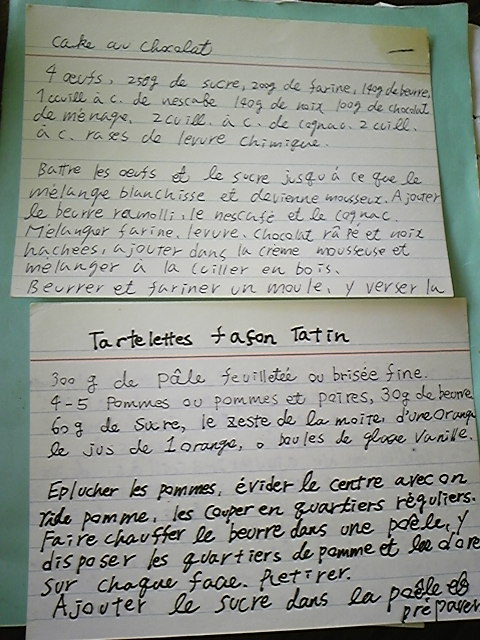 cake au chocolat
4 œufs, 250g de sucre, 200g de farine, 140g de beurre,
1 cuill à c. de nescafe 140g de noix 100g de chocolat
de ménage. 2 cuill. à c. de cognac. 2 cuill.
à c. rases de levure chimique.
Battre les oeufs et le sucre jusqu'à ce que le
mélange blanchisse et devienne mousseux. Ajouter
le beurre ramolli, le nescafé et le cognac.
Mélanger farine. levure. chocolat râpé et noix
hachées, ajouter dans la crème mousseuse et
mélanger à la cuiller en bois.
Beurrer et fariner un moule, y verser la
Tartelettes façon Tatin
300 g de pâle feuilletée ou brisée fine.
4-5 Pommes ou pommes et poires, 30g de beurre
60g de sucre, le zeste de la moite, d'une orange
le jus de 1 orange, boules de glace vanille.
Eplucher les pommes, évider le centre avec on
vide pomme, les couper en quartiers réguliers.
Faire chauffer le beurre dans une poêle, y
disposer les quartiers de pomme et les dore
sur chaque face. Retirer.
Ajouter le sucre dans la poêle et
préparer